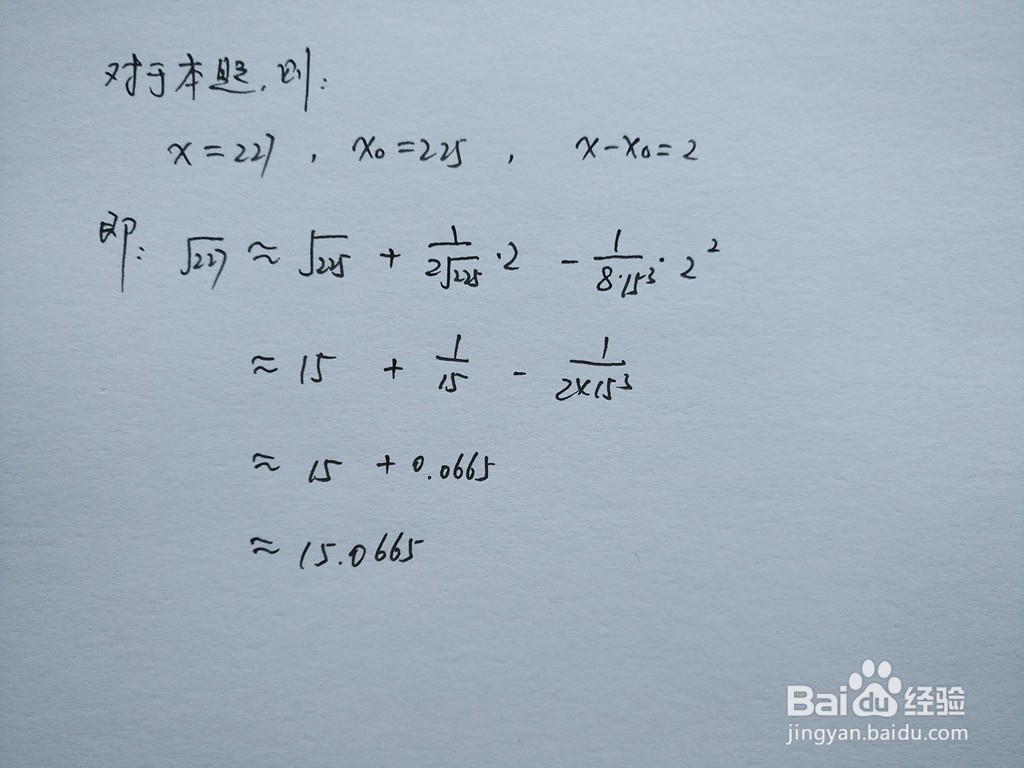 对于本题,则:
x=227, x₀=225, x-x₀=2
即: √227 ≈ √225 + 1/(2√225)·2 - 1/(8·15³)·2²
≈ 15 + 1/15 - 1/(2×15³)
≈ 15 + 0.0665
≈ 15.0665
Baidu经验
jingyan.baidu.com